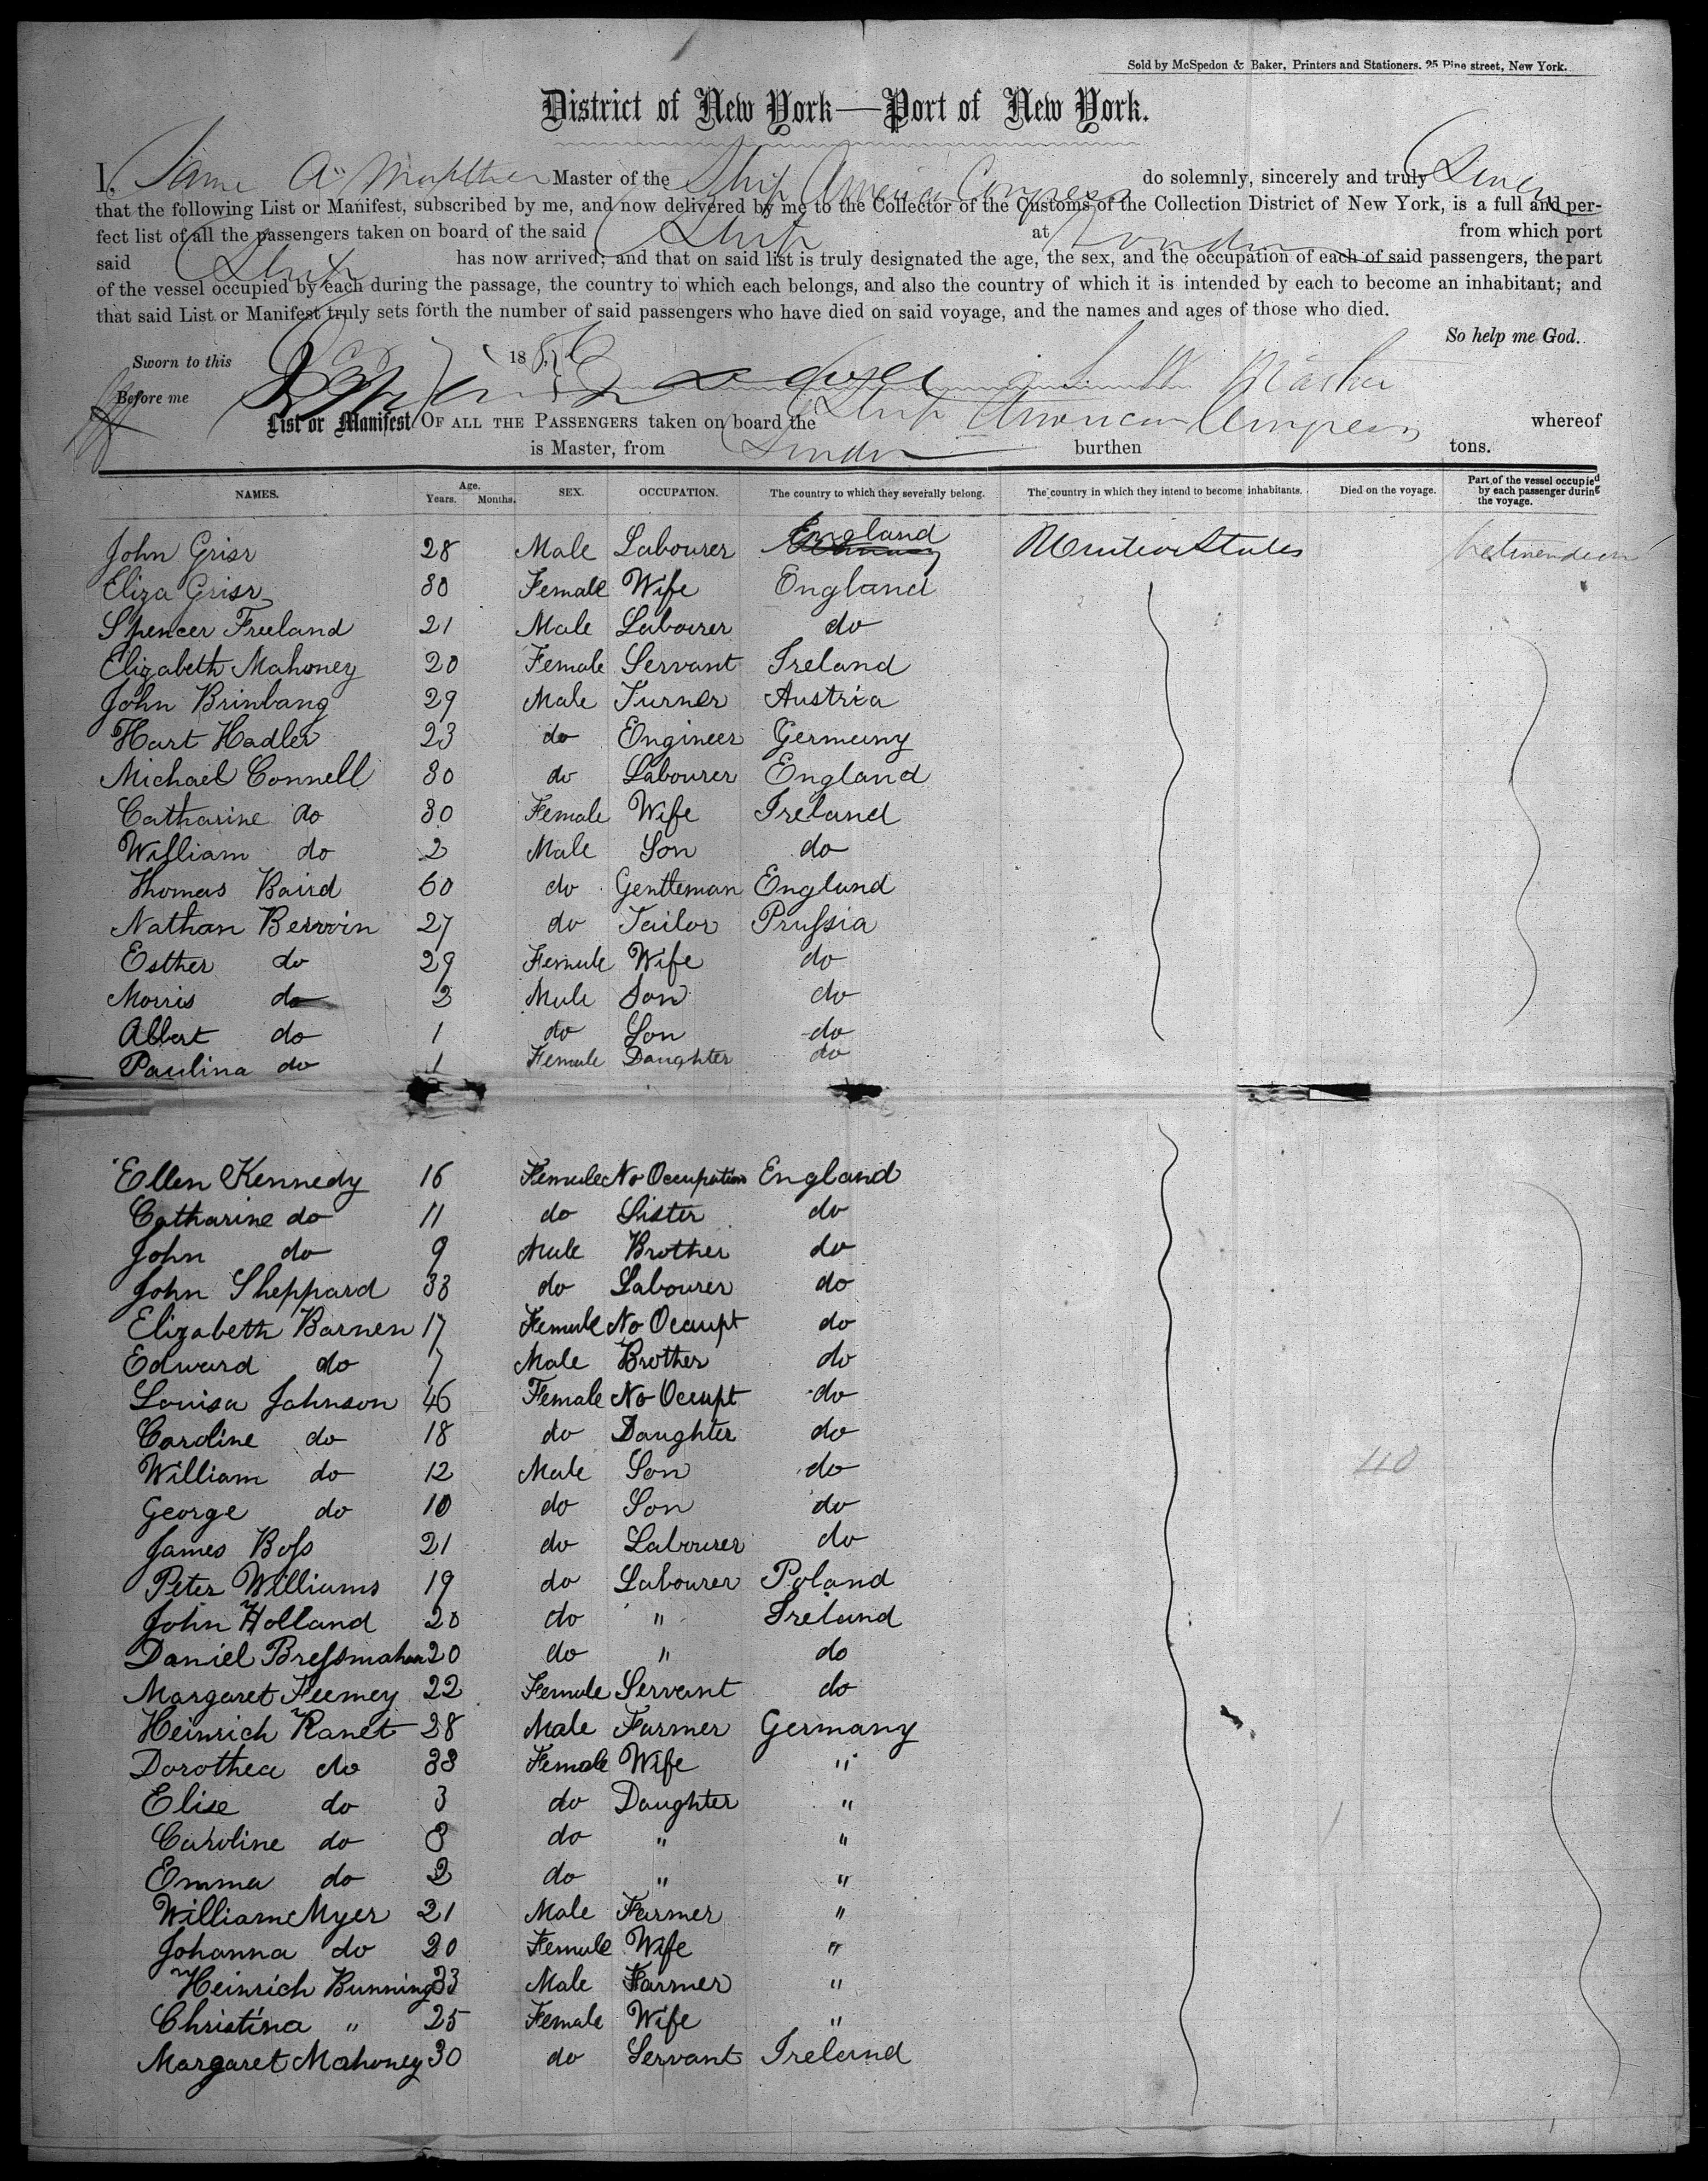 Sold by McSpedon & Baker, Printers and Stationers. 25 Pine street, New York.
District of New York—Port of New York.
I, Master of the Ship American Congress do solemnly, sincerely and truly Swear
that the following List or Manifest, subscribed by me, and now delivered by me to the Collector of the Customs of the Collection District of New York, is a full and per-
fect list of all the passengers taken on board of the said Ship at London from which port
said Ship has now arrived; and that on said list is truly designated the age, the sex, and the occupation of each of said passengers, the part
of the vessel occupied by each during the passage, the country to which each belongs, and also the country of which it is intended by each to become an inhabitant; and
that said List or Manifest truly sets forth the number of said passengers who have died on said voyage, and the names and ages of those who died.
So help me God.
Sworn to this 1856
Before me
List or Manifest OF ALL THE PASSENGERS taken on board the Ship American Congress whereof
is Master, from London burthen tons.
NAMES. Age. Years. Months. SEX. OCCUPATION. The country to which they severally belong. The country in which they intend to become inhabitants. Died on the voyage. Part of the vessel occupied by each passenger during the voyage.
John Grisr 28 Male Labourer England United States
Eliza Grisr 30 Female Wife England
Spencer Freeland 21 Male Labourer do
Elizabeth Mahoney 20 Female Servant Ireland
John Brinbang 29 Male Turner Austria
Hart Hadler 23 do Engineer Germany
Michael Connell 30 do Labourer England
Catharine do 30 Female Wife Ireland
William do 2 Male Son do
Thomas Baird 60 do Gentleman England
Nathan Berwin 27 do Tailor Prussia
Esther do 29 Female Wife do
Morris do 3 Male Son do
Albert do 1 do Son do
Paulina do 1 Female Daughter do
Ellen Kennedy 16 Female No Occupation England
Catharine do 11 do Sister do
John do 9 Male Brother do
John Sheppard 33 do Labourer do
Elizabeth Barnen 17 Female No Occupt do
Edward do 7 Male Brother do
Louisa Johnson 46 Female No Occupt do
Caroline do 18 do Daughter do
William do 12 Male Son do
40
George do 10 do Son do
James Boss 21 do Labourer do
Peter Williams 19 do Labourer Poland
John Holland 20 do " Ireland
Daniel Bressmahan 20 do " do
Margaret Feemey 22 Female Servant do
Heinrich Ranet 28 Male Farmer Germany
Dorothea do 38 Female Wife "
Elise do 3 do Daughter "
Caroline do 8 do " "
Emma do 2 do " "
William Myer 21 Male Farmer "
Johanna do 20 Female Wife "
Heinrich Bunning 33 Male Farmer "
Christina " 25 Female Wife "
Margaret Mahoney 30 do Servant Ireland